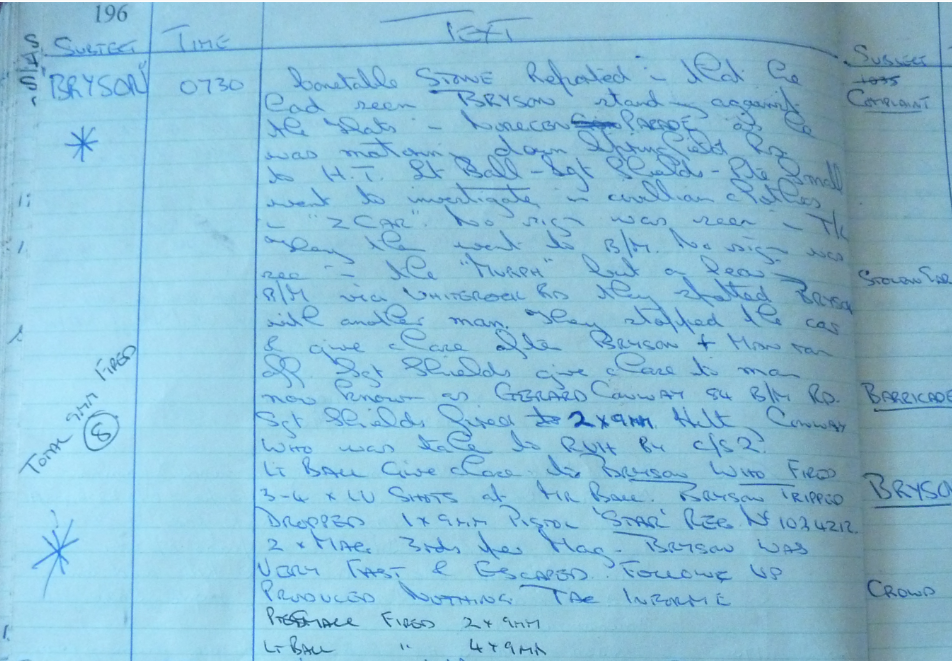 196
SUBJECT TIME TEXT
"BRYSON" 0730 Constable STOWE Reported :- that he
had seen BRYSON standing against
the flats - NORGLEN PARADE as he
was down Springfield Rd
to H.T. Lt Ball - Sgt Shields - Pte Small
went to investigate in civilian clothes
in "Z CAR". No sign was seen in T/L
They then went to B/M. No sign was
seen in the "MURPH" but on leaving
B/M via WHITEROCK RD they spotted BRYSON
with another man. They stopped the car
& give chase after BRYSON + Man ran
off Sgt Shields give chase to man
now known as GERARD CONWAY 94 B/M RD.
Sgt Shields fired 2 x 9MM Hit CONWAY
WHO was taken to RVH BY C/S 2.
LT BALL Give chase to BRYSON WHO FIRED
3-4 x LV SHOTS at MR BALL. BRYSON TRIPPED
DROPPED 1 x 9MM PISTOL 'STAR' REG No 1034212.
2 x MAG. 3rds per Mag. BRYSON WAS
VERY FAST & ESCAPED. FOLLOW UP
PRODUCED NOTHING TAC INFORMED
PTE SMALL FIRED 2 x 9MM
LT BALL " 4 x 9MM
TOTAL 9MM FIRED
8
SUBJECT
1035
COMPLAINT
STOLEN
BARRICADE
BRYSON
CROWD